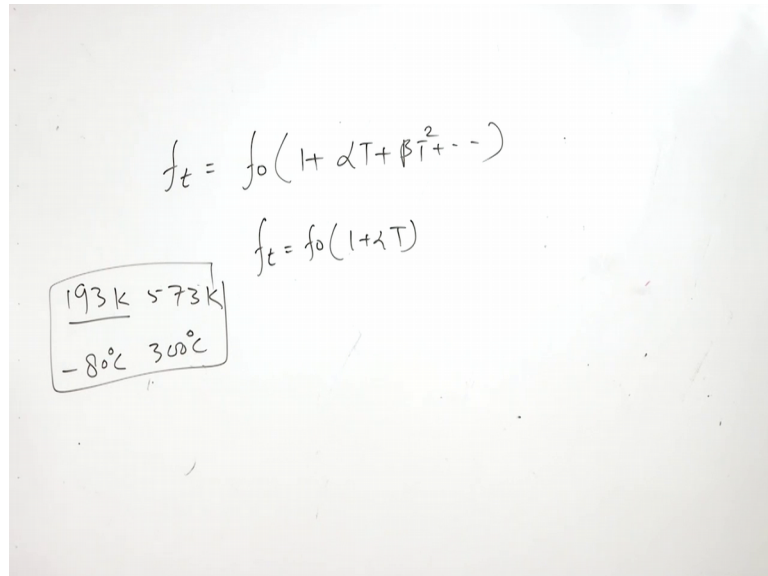 ft = fo(1+ αT+ βT²+---)
ft = fo(1+αT)
193K 573K
-80°C 300°C